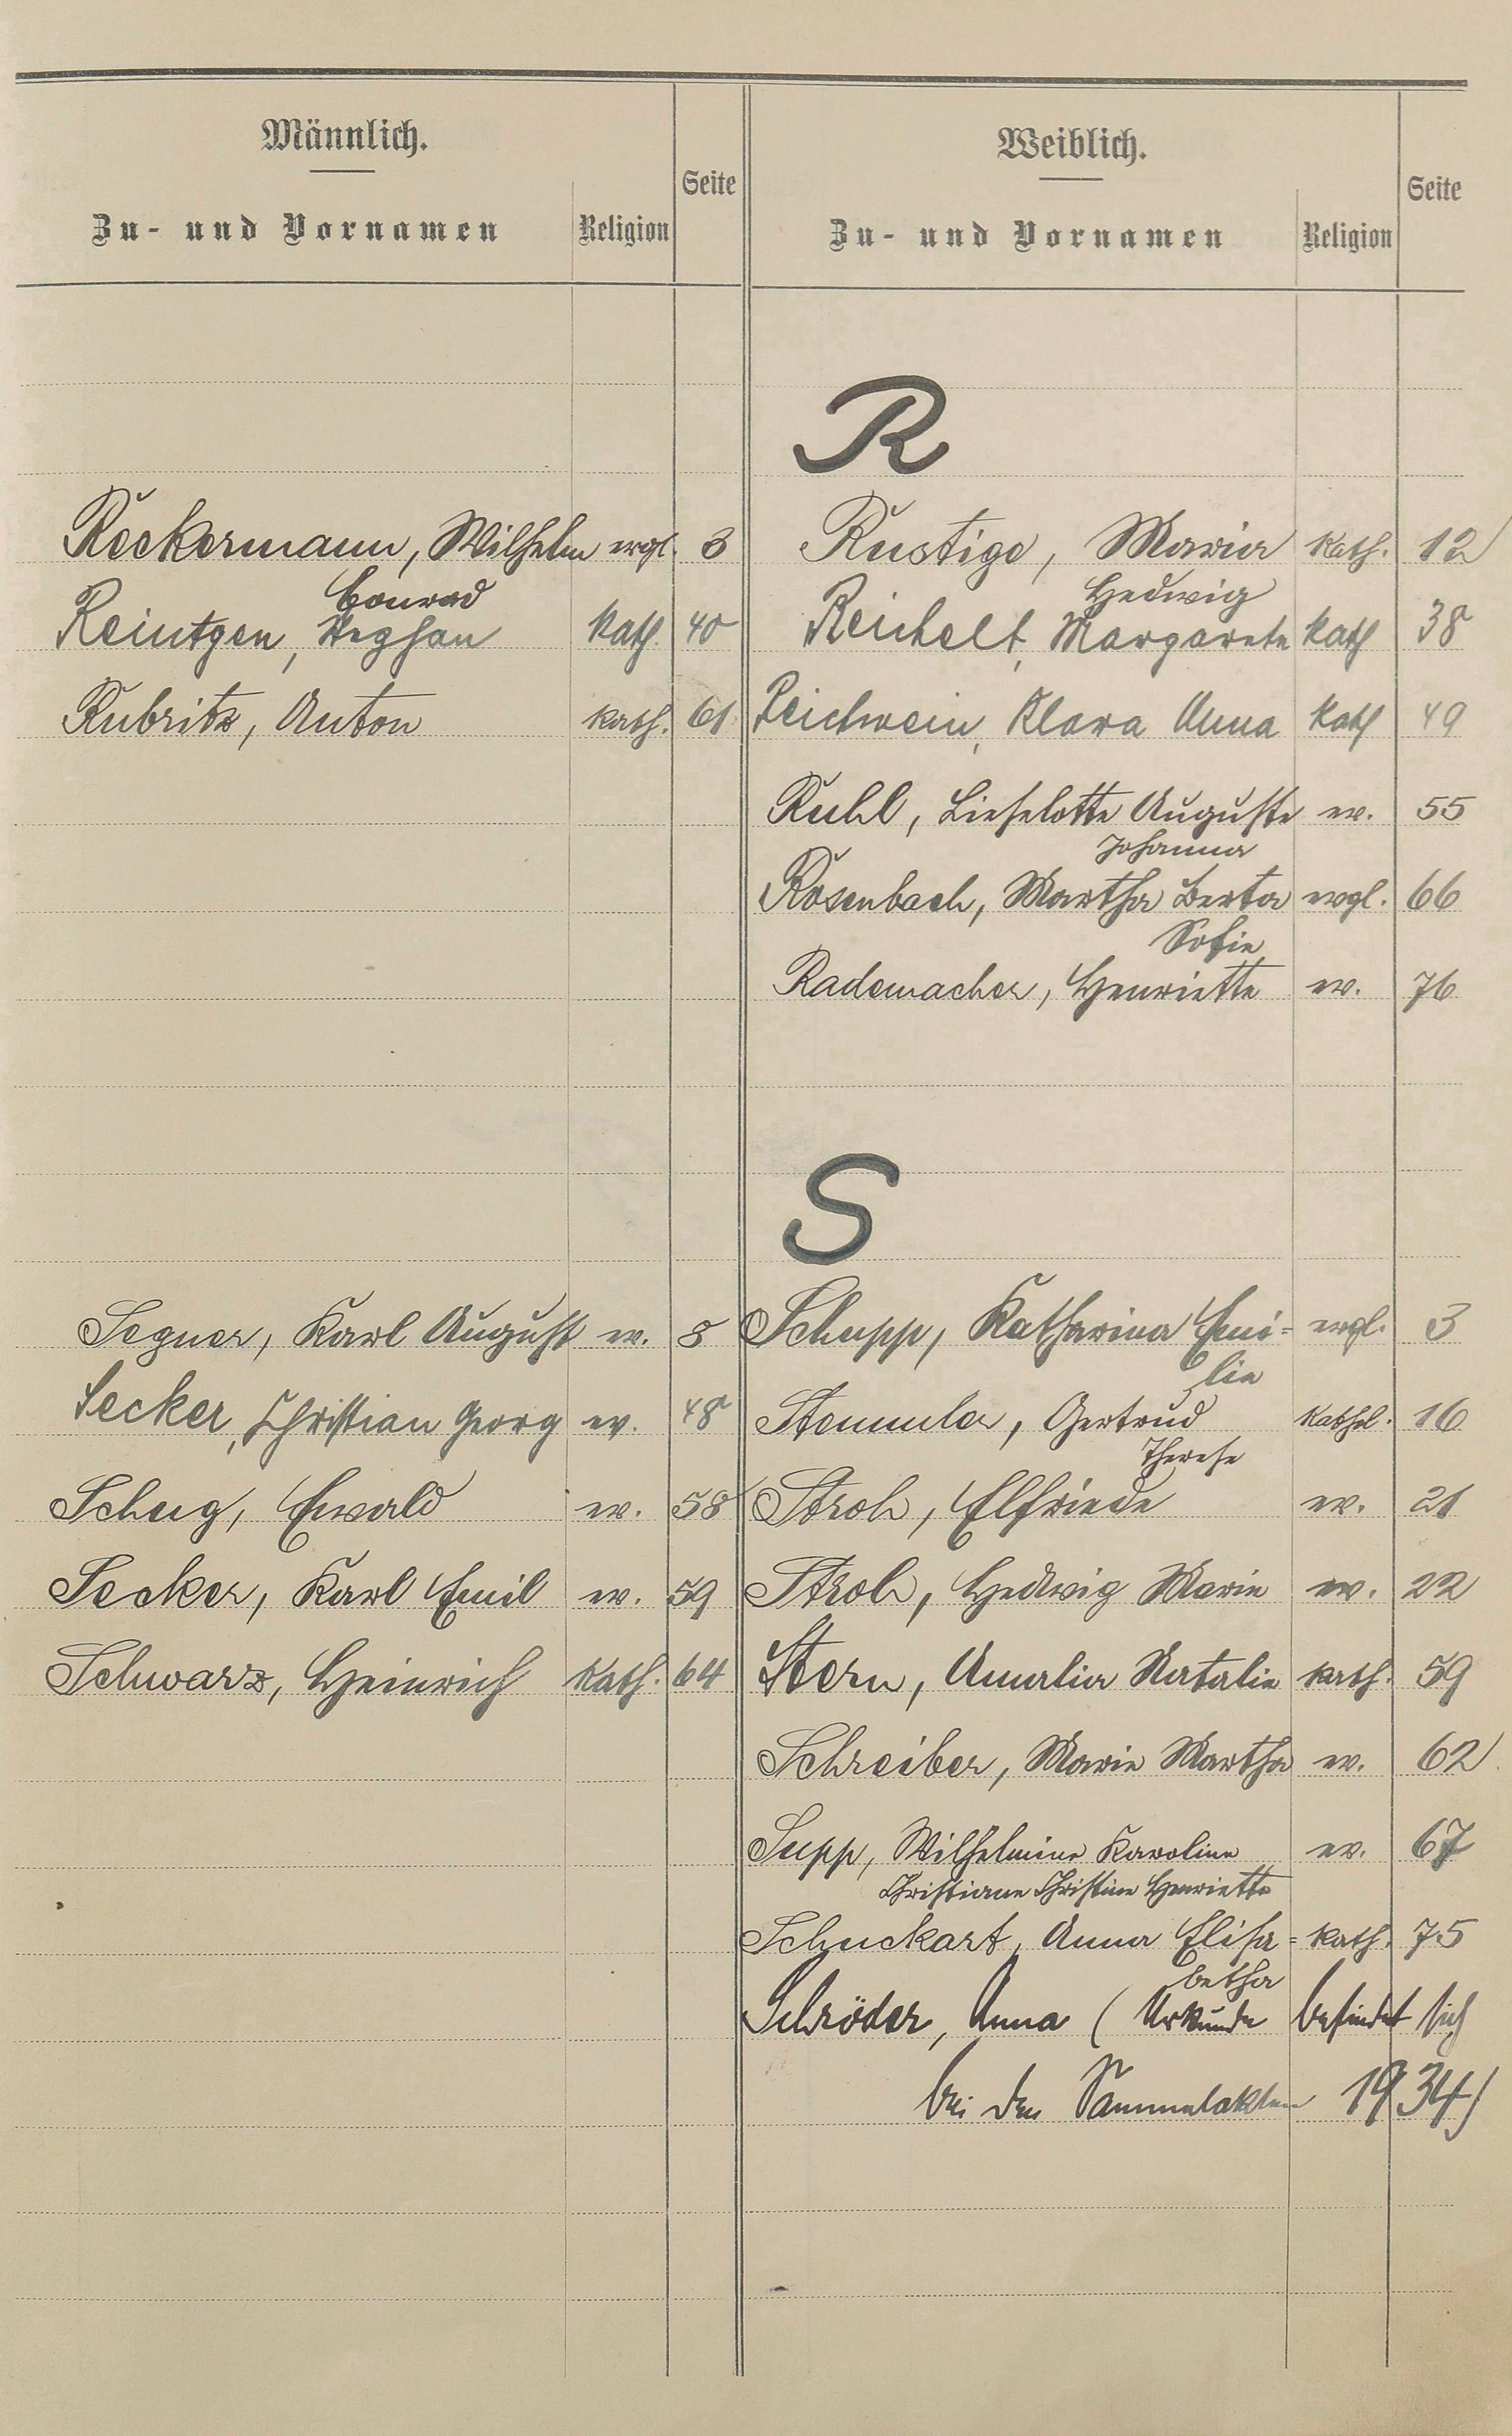 Männlich.
Zu- und Vornamen Religion Seite
Weiblich.
Zu- und Vornamen Religion Seite
R
Reckermann, Wilhelm evgl. 3
Conrad
Reintgen, Stephan kath. 40
Rubritz, Anton kath. 61
Rustige, Maria kath. 12
Hedwig
Reichelt, Margarete kath 38
Reichwein, Klara Anna kath 49
Ruhl, Lieselotte Auguste ev. 55
Johanna
Rosenbach, Martha Berta evgl. 66
Sofie
Rademacher, Henriette ev. 76
S
Segner, Karl August ev. 8
Secker, Christian Georg ev. 48
Schug, Ewald ev. 58
Secker, Karl Emil ev. 59
Schwarz, Heinrich kath. 64
Schupp, Katharina Emi= evgl. 3
lie
Stemmler, Gertrud kathol. 16
Therese
Stroh, Elfriede ev. 21
Stroh, Hedwig Marie ev. 22
Stern, Amalia Natalie kath. 59
Schreiber, Marie Martha ev. 62
Supp, Wilhelmine Karoline ev. 67
Christiane Christine Henriette
Schuckart, Anna Elisa= kath. 75
betha
Schröder, Anna (Urkunde befindet sich
bei den Sammelakten 1934)